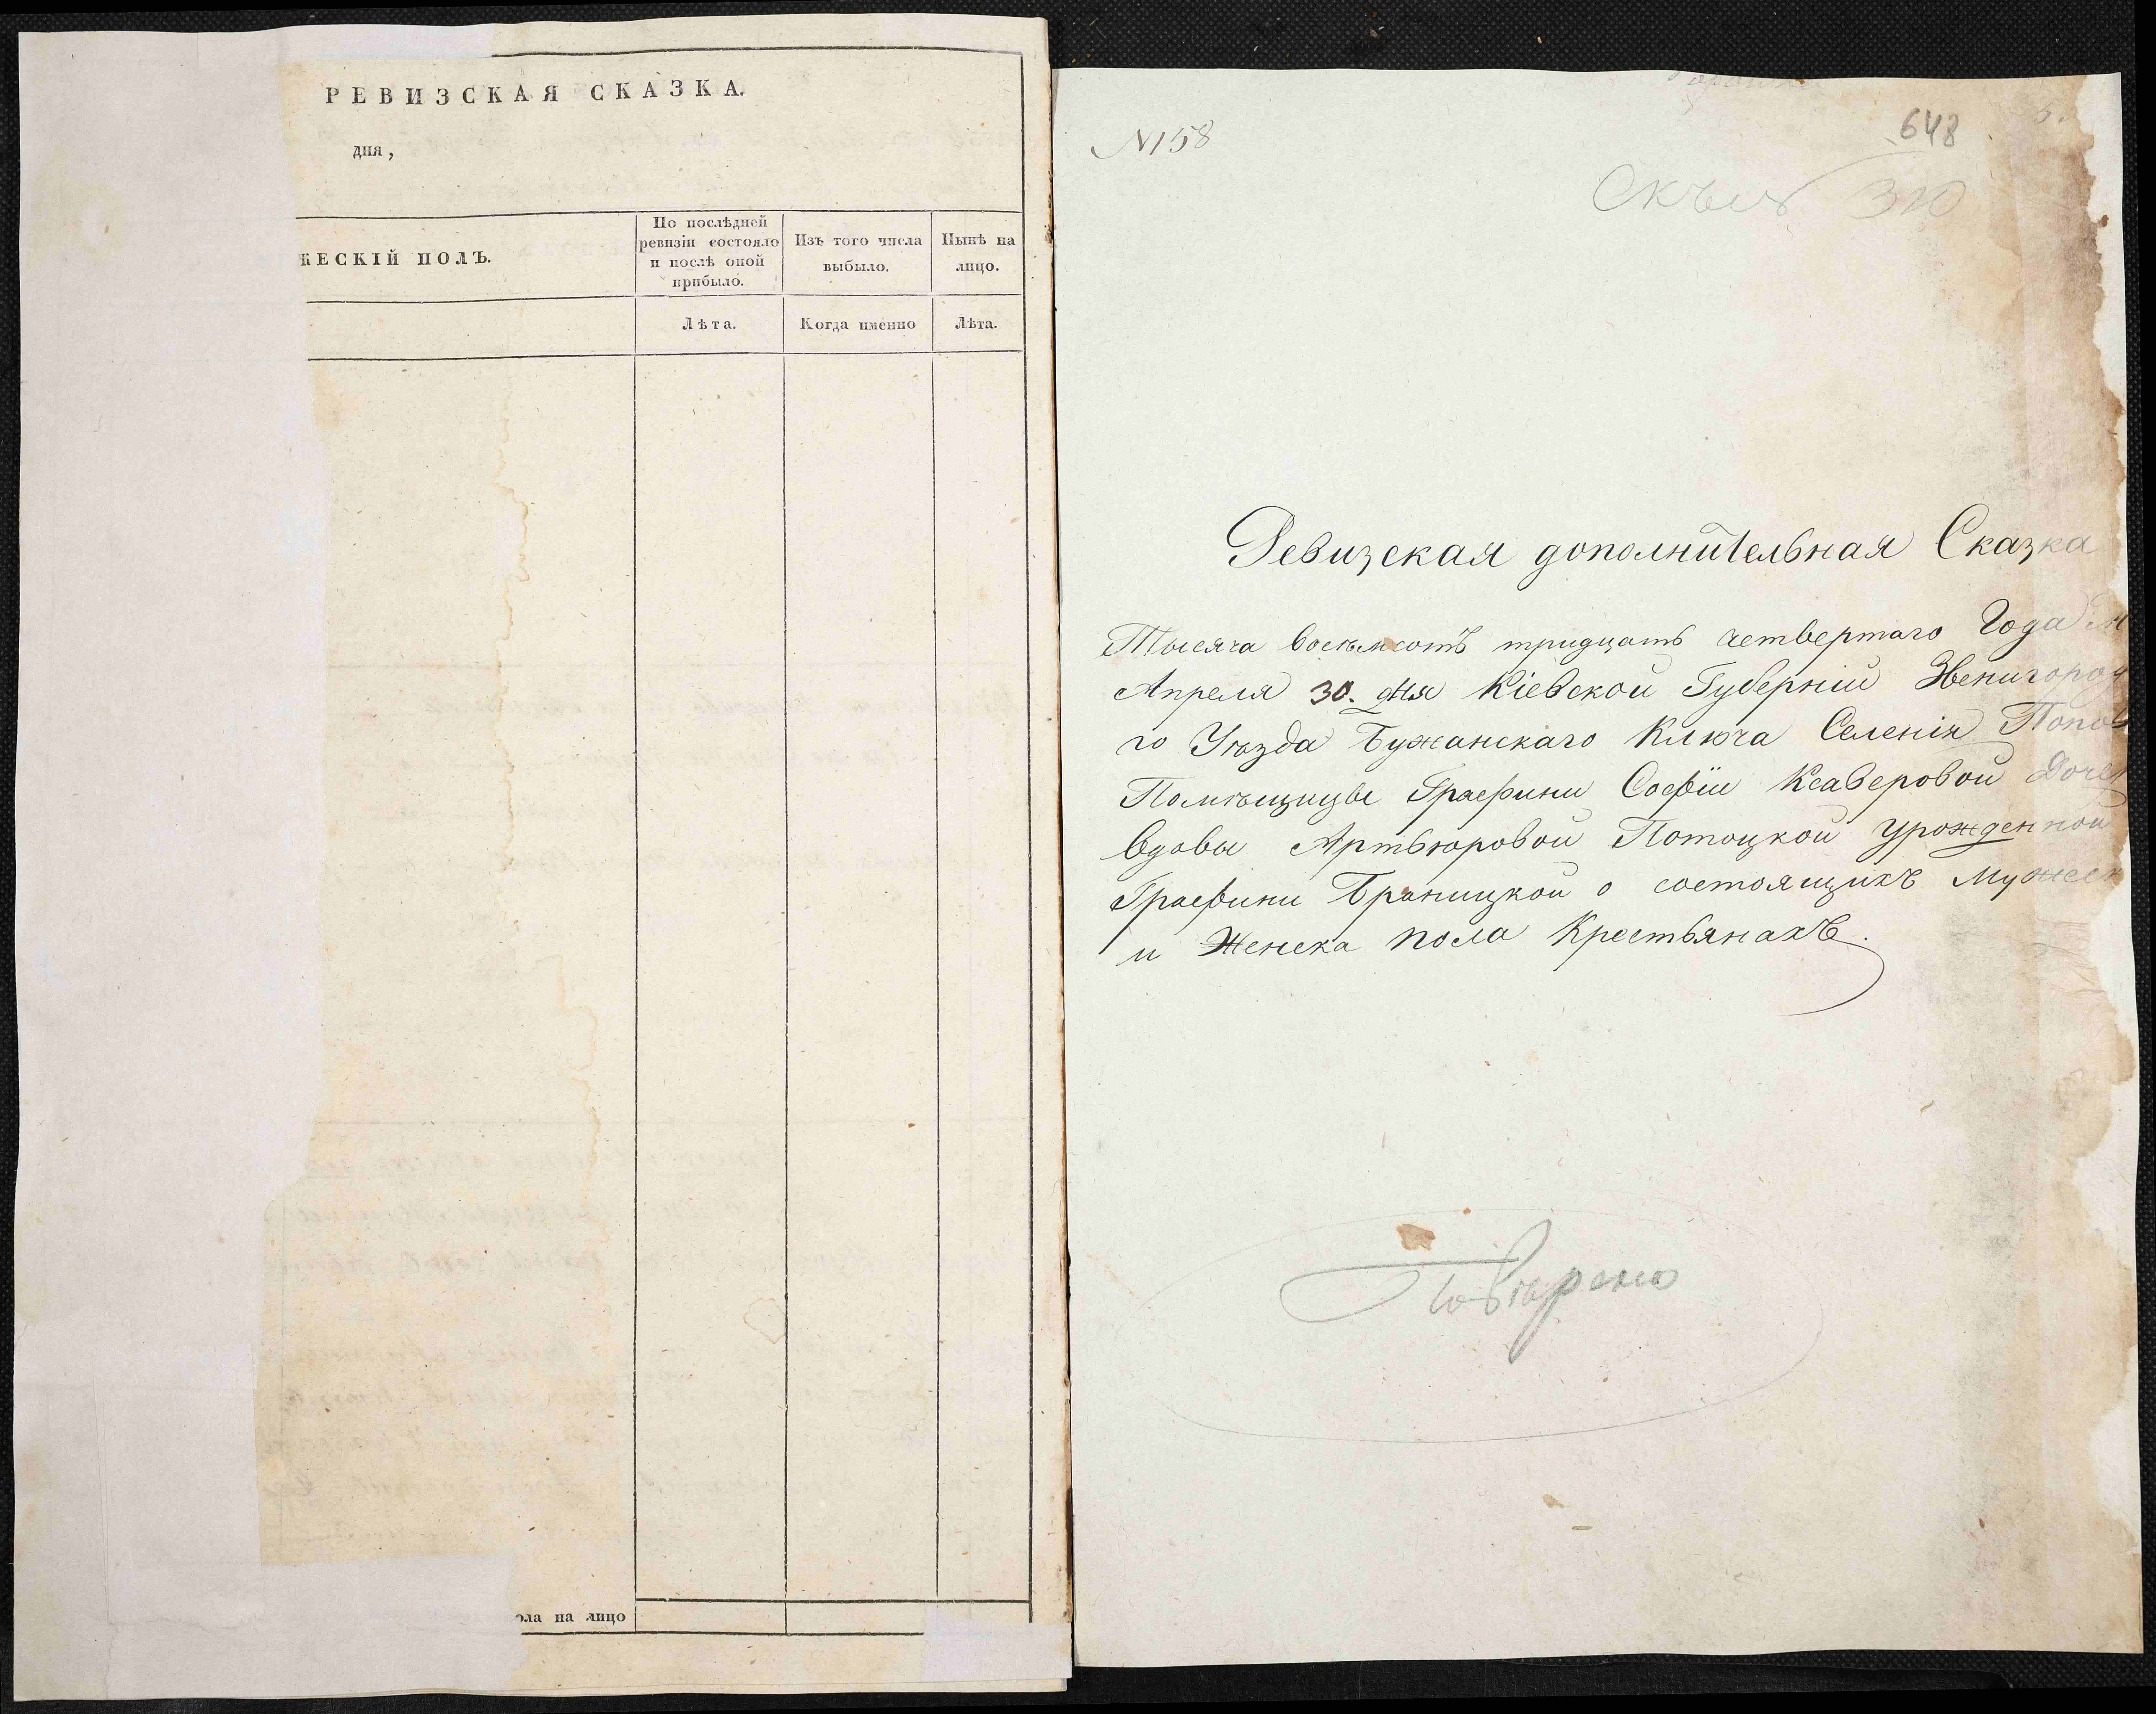 РЕВИЗСКАЯ СКАЗКА.
дня,
ЖЕСКІЙ ПОЛЪ.
По послѣдней
ревизіи состояло
и послѣ оной
прибыло.
Изъ того числа
выбыло.
Нынѣ на
лицо.
Лѣта.
Когда именно
Лѣта.
ола на лицо
N158
648
310
Ревизская дополнительная Сказка
Тысяча восемьсотъ тридцать четвертаго Года М
Апреля 30. дня Кіевской Губерніи Звенигород
го Уѣзда Бужанскаго Ключа Селенія Попов
Помѣщицы Графини Софіи Ксаверовой Дочер
Вдовы Артьюровой Потоцкой урожденной
Графини Браницкой о состоящихъ Мужеск
и Женска пола Крестьянахъ.
Повѣрено